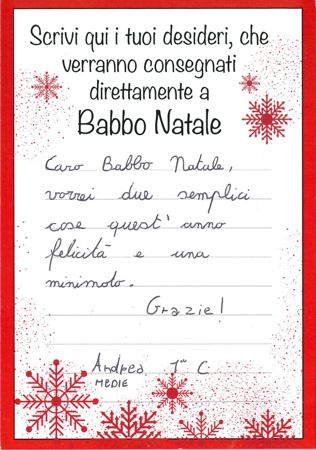 Scrivi qui i tuoi desideri, che
verranno consegnati
direttamente a
Babbo Natale
Caro Babbo Natale,
vorrei due semplici
cose quest' anno
felicità e una
minimoto.
Grazie!
Andrea 1ª C
MEDIE